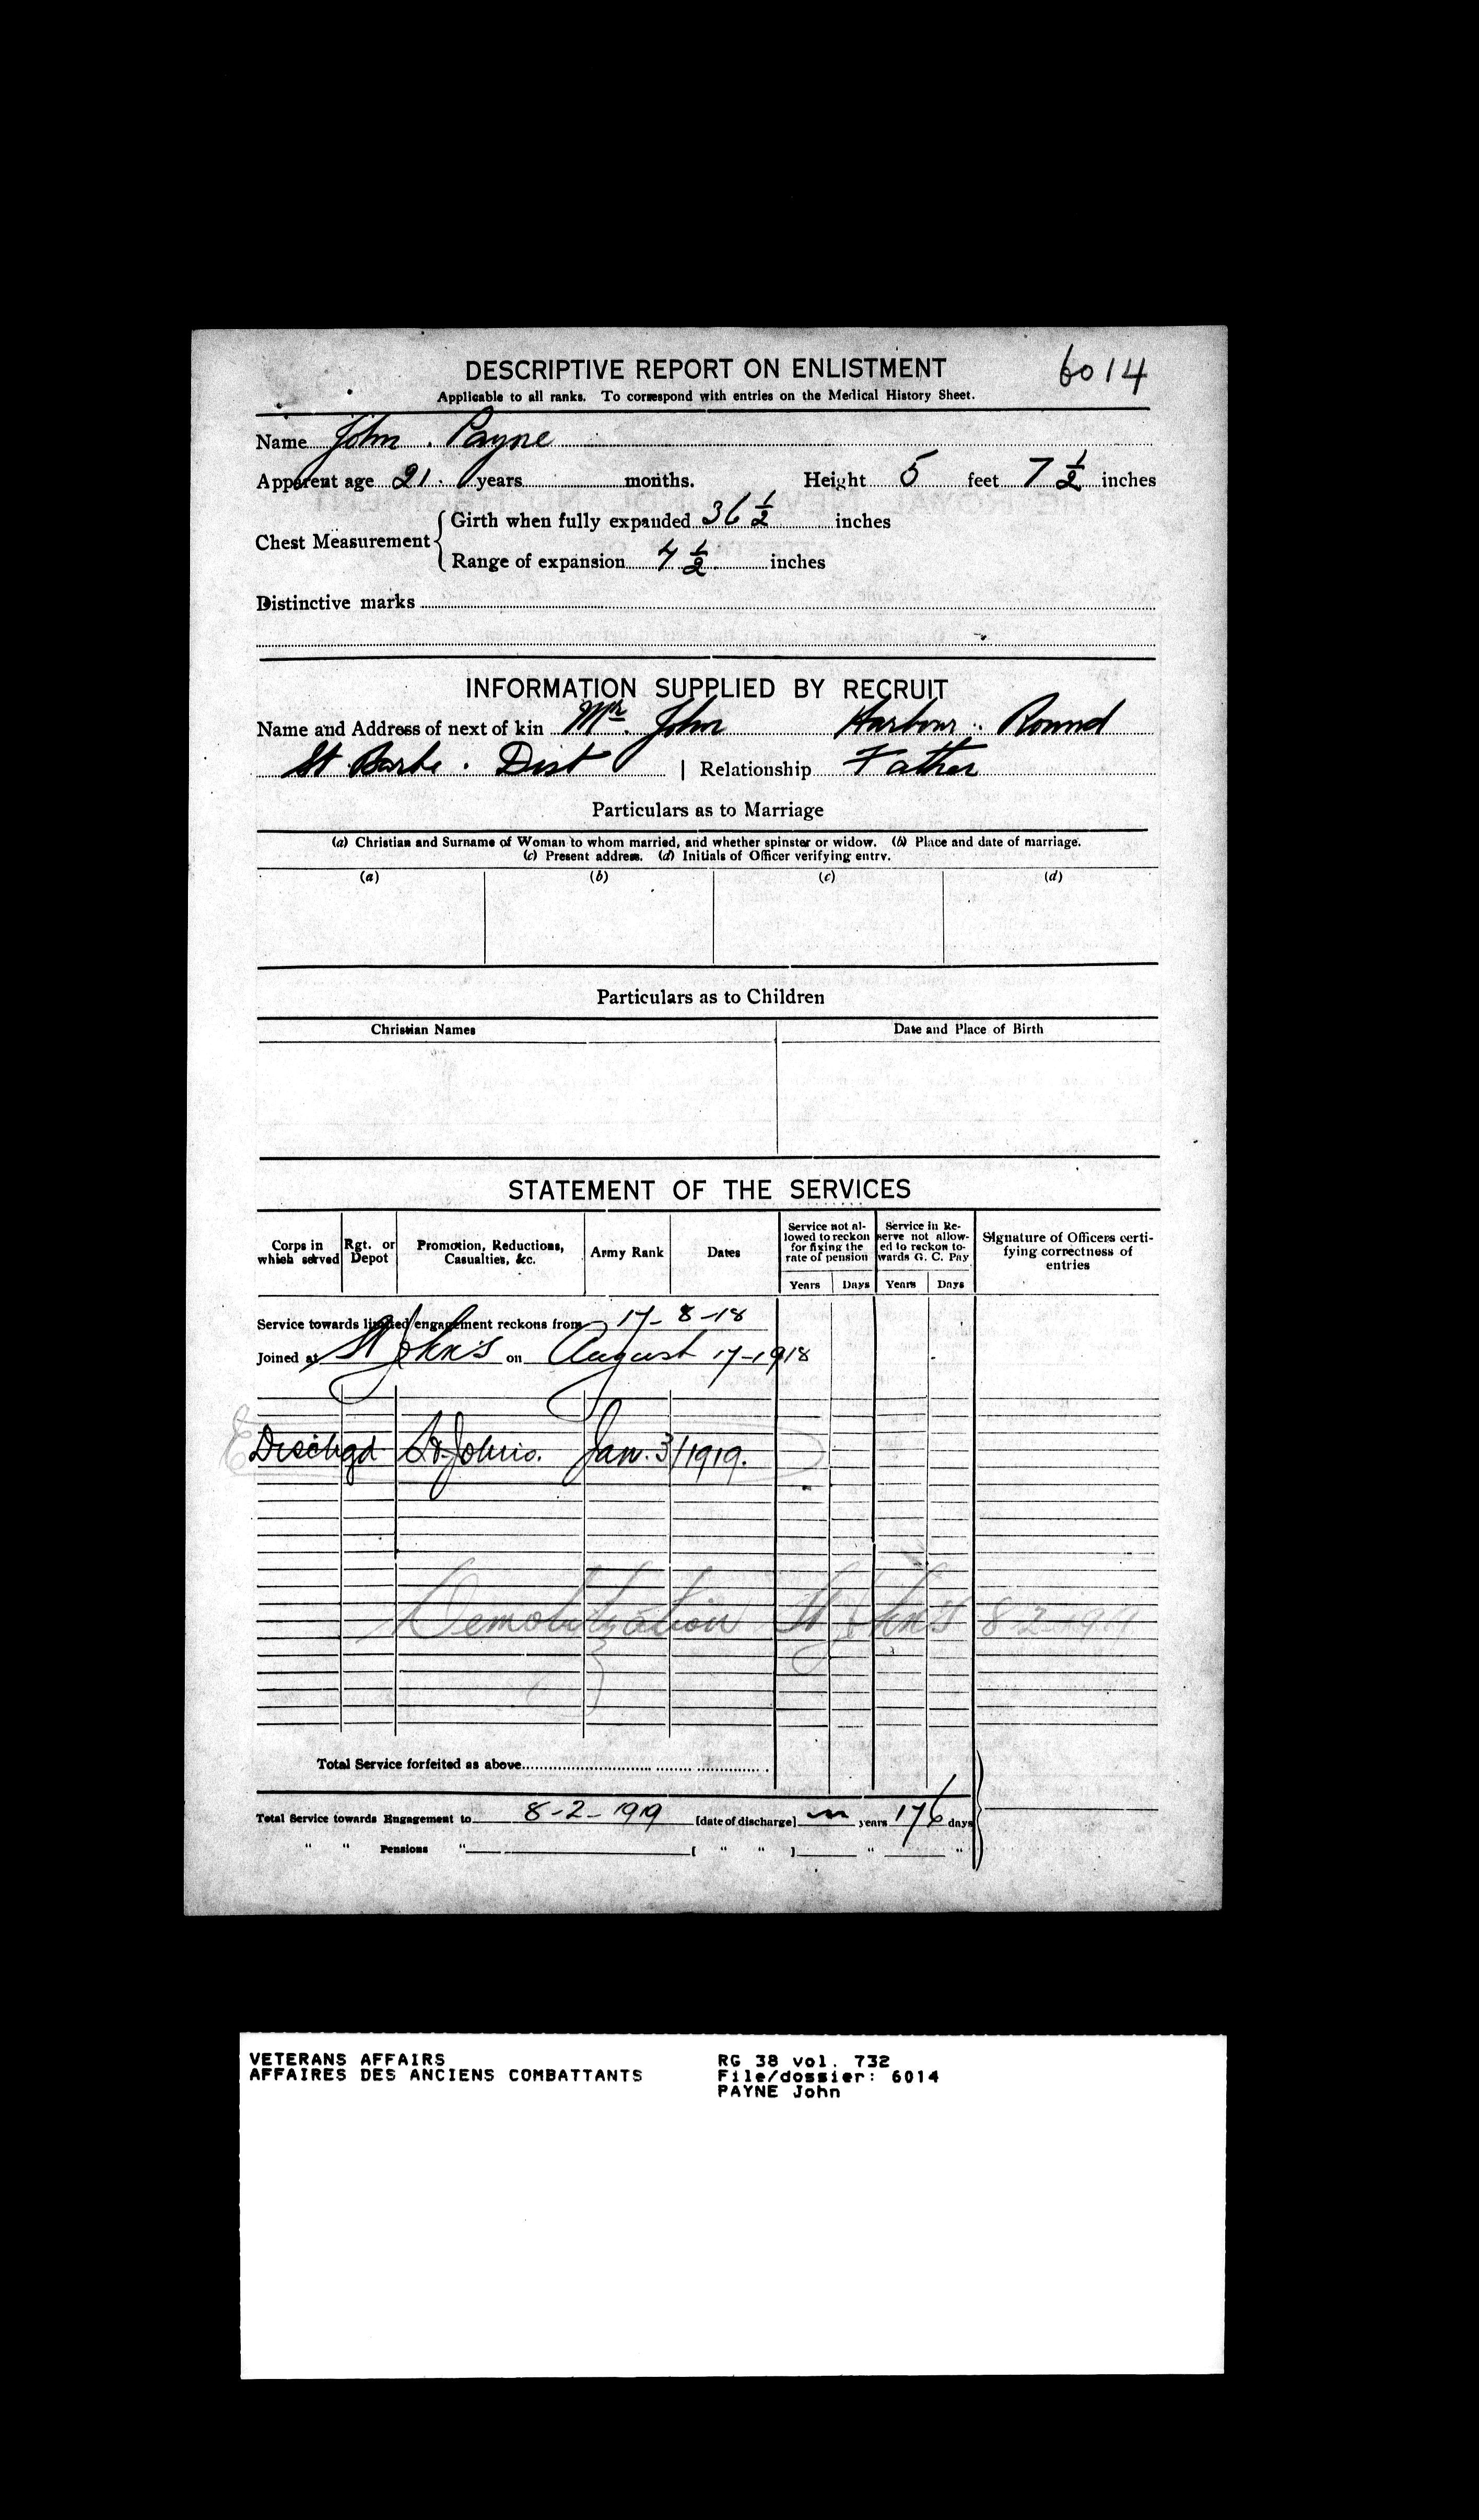 DESCRIPTIVE REPORT ON ENLISTMENT 6014
Applicable to all ranks. To correspond with entries on the Medical History Sheet.
Name John . Payne
Apparent age 21 . years months. Height 5 feet 7 1/2 inches
Chest Measurement { Girth when fully expanded 36 1/2 inches
Range of expansion 4 1/2 inches
Distinctive marks
INFORMATION SUPPLIED BY RECRUIT
Name and Address of next of kin Mr. John Harbour . Round
St Barbe . Dist | Relationship Father
Particulars as to Marriage
(a) Christian and Surname of Woman to whom married, and whether spinster or widow. (b) Place and date of marriage.
(c) Present address. (d) Initials of Officer verifying entry.
(a) (b) (c) (d)
Particulars as to Children
Christian Names Date and Place of Birth
STATEMENT OF THE SERVICES
Corps in which served Rgt. or Depot Promotion, Reductions, Casualties, &c. Army Rank Dates Service not allowed to reckon for fixing the rate of pension Service in Reserve not allowed to reckon towards G. C. Pay Signature of Officers certifying correctness of entries
Years Days Years Days
Service towards limited engagement reckons from 17-8-18
Joined at St John's on August 17-1918
Dischgd St. Johns. Jan. 3/1919.
Demobilization St John's 8-2-1919
Total Service forfeited as above
Total Service towards Engagement to 8-2-1919 [date of discharge] years 176 days
" " Pensions " [ " " ] " "
VETERANS AFFAIRS RG 38 vol. 732
AFFAIRES DES ANCIENS COMBATTANTS File/dossier: 6014
PAYNE John